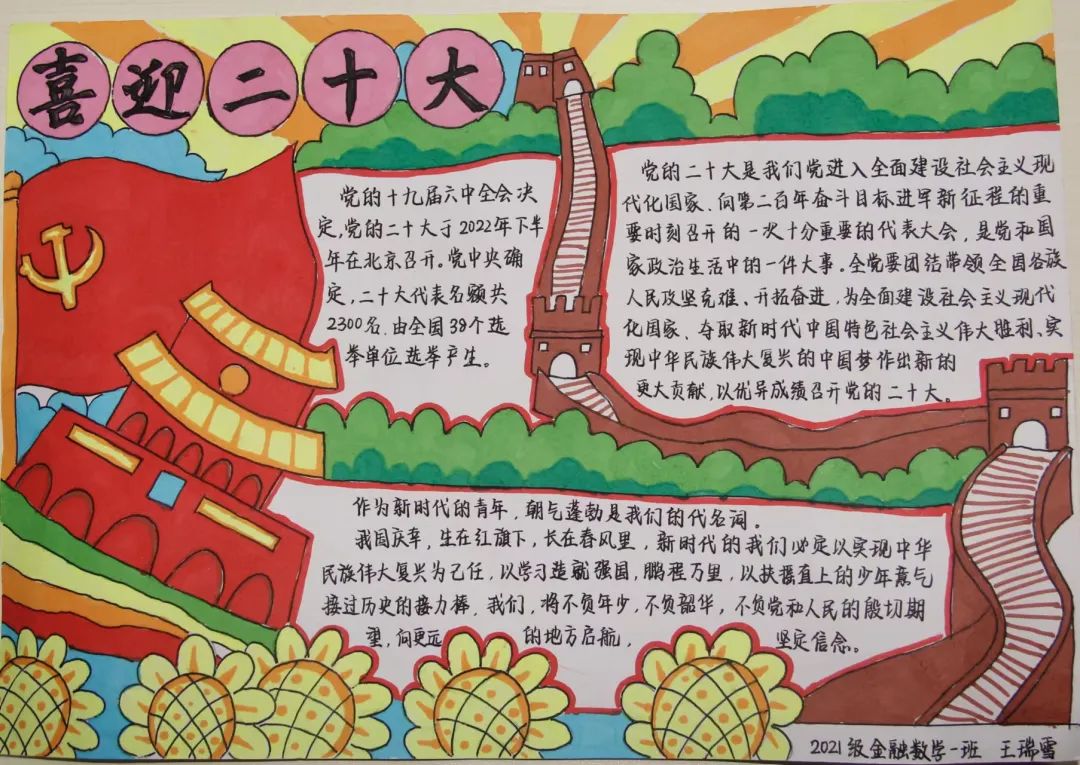 喜迎二十大
党的十九届六中全会决
定,党的二十大于2022年下半
年在北京召开。党中央确
定,二十大代表名额共
2300名.由全国38个选
举单位选举产生。
党的二十大是我们党进入全面建设社会主义现
代化国家、向第二百年奋斗目标进军新征程的重
要时刻召开的一次十分重要的代表大会,是党和国
家政治生活中的一件大事。全党要团结带领全国各族
人民攻坚克难、开拓奋进,为全面建设社会主义现代
化国家、夺取新时代中国特色社会主义伟大胜利、实
现中华民族伟大复兴的中国梦作出新的
更大贡献,以优异成绩召开党的二十大。
作为新时代的青年,朝气蓬勃是我们的代名词。
我国庆幸,生在红旗下,长在春风里,新时代的我们必定以实现中华
民族伟大复兴为己任,以学习造就强国,鹏程万里,以扶摇直上的少年意气
接过历史的接力棒,我们,将不负年少,不负韶华,不负党和人民的殷切期
望,向更远的地方启航,坚定信念。
2021级金融数学一班 王瑞雪